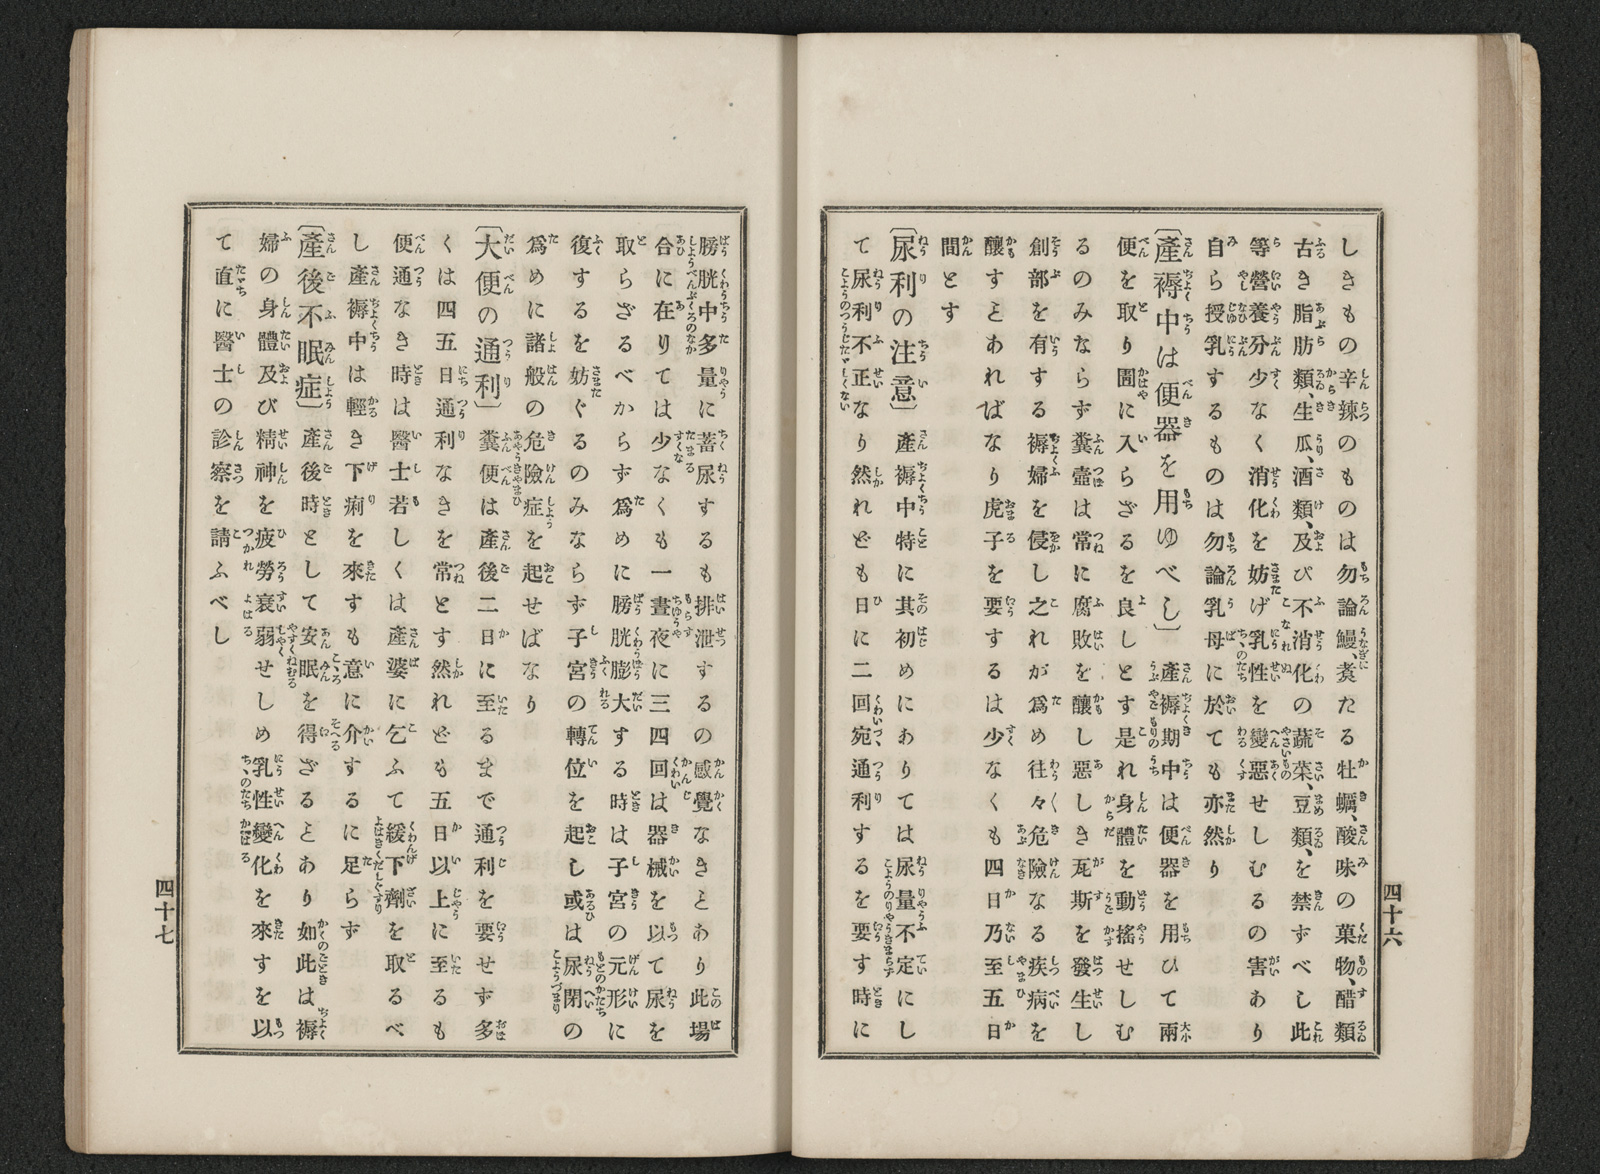 しきもの辛辣のものは勿論鰻、煑たる牡蠣、酸味の菓物、醋類
古き脂肪類、生瓜、酒類、及び不消化の蔬菜、豆類、を禁ずべし此
等營養分少なく消化を妨げ乳性を變惡せしむるの害あり
自ら授乳するものは勿論乳母に於ても亦然り
〔產褥中は便器を用ゆべし〕產褥期中は便器を用ひて兩
便を取り圊に入らざるを良しとす是れ身體を動搖せしむ
るのみならず糞壺は常に腐敗を釀し惡しき瓦斯を發生し
創部を有する褥婦を侵し之れが為め往々危險なる疾病を
釀すとあればなり虎子を要するは少なくも四日乃至五日
間とす
〔尿利の注意〕產褥中特に其初めにありては尿量不定にし
て尿利不正なり然れども日に二回宛通利するを要す時に
四十六
膀胱中多量に蓄尿するも排泄するの感覺なきとあり此場
合に在りては少なくも一晝夜に三四回は器械を以て尿を
取らざるべからず爲めに膀胱膨大する時は子宮の元形に
復するを妨ぐるのみならず子宮の轉位を起し或は尿閉の
爲めに諸般の危險症を起せばなり
〔大便の通利〕糞便は產後二日に至るまで通利を要せず多
くは四五日通利なきを常とす然れども五日以上に至るも
便通なき時は醫士若しくは產婆に乞ふて緩下劑を取るべ
し產褥中は輕き下痢を來すも意に介するに足らず
〔產後不眠症〕產後時として安眠を得ざるとあり如此は褥
婦の身體及び精神を疲勞衰弱せしめ乳性變化を來すを以
て直に醫士の診察を請ふべし
四十七